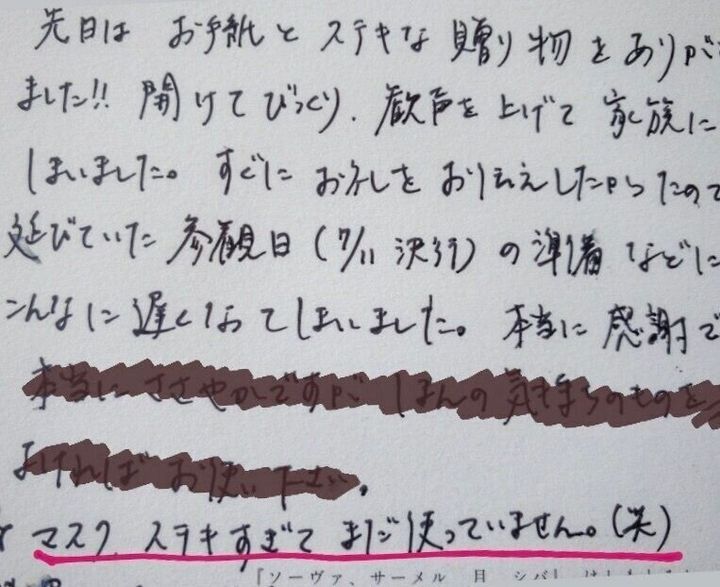 先日は お手紙と ステキな 贈り物を ありが
ました!! 開けてびっくり、歓声を上げて 家族に
しまいました。すぐに お礼を お伝えしたかったので
延びていた 参観日(7/11 決行)の準備などに
こんなに遅くなってしまいました。本当に感謝で
本当にささやかですが ほんの気持ちのものを
よければ お使い下さい。
マスク、ステキすぎて まだ使っていません。(笑)
『ソーヴァ、サーメル 目 シバ